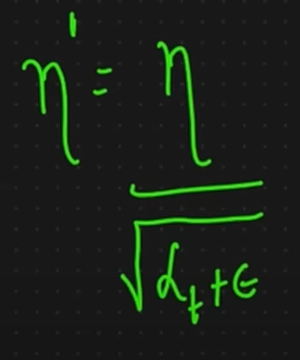 η' = η / √(α_t + ε)